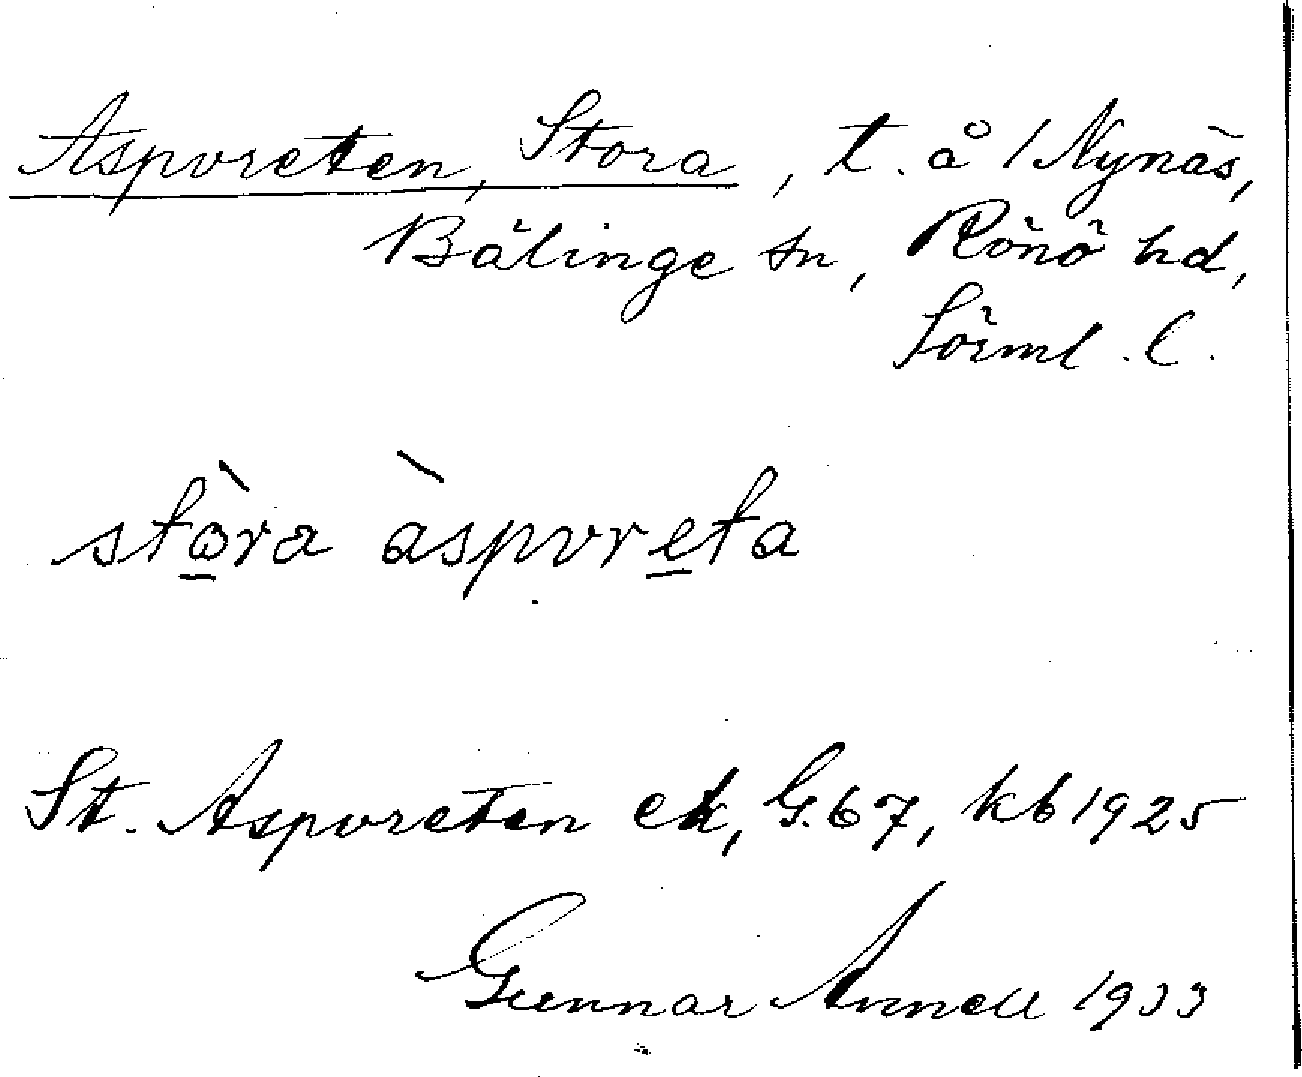 Aspvreten, Stora, t. å 1 Nynäs,
Bälinge sn, Rönö hd,
Sörml. l.
stòra àspvreta
St. Aspvreten ek, G.67, kb 1925
Gunnar Annell 1933